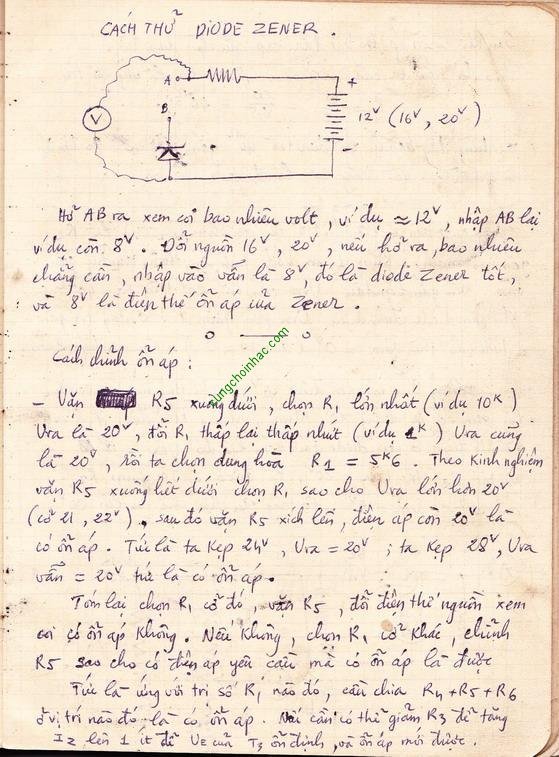 CÁCH THỬ DIODE ZENER.
A
+
V
B
12V (16V, 20V)
-
Hở AB ra xem coi bao nhiêu volt, ví dụ ≈ 12V, nhập AB lại
ví dụ còn 8V. Đổi nguồn 16V, 20V, nếu hở ra, bao nhiêu
chẳng cần, nhập vào vẫn là 8V, đó là diode Zener tốt,
và 8V là điện thế ổn áp của Zener.
cungchoinhac.com
Cách chỉnh ổn áp :
- Vặn R5 xuống dưới, chọn R1 lớn nhất (ví dụ 10K)
Ura là 20V, đổi R1 thấp lại thấp nhứt (ví dụ 1K) Ura cũng
là 20V, rồi ta chọn dung hòa R1 = 5K6. Theo Kinh nghiệm
vặn R5 xuống hết dưới chọn R1 sao cho Ura lớn hơn 20V
(cỡ 21, 22V), sau đó vặn R5 xích lên, điện áp còn 20V là
có ổn áp. Tức là ta Kẹp 24V, Ura = 20V ; ta Kẹp 28V, Ura
vẫn = 20V tức là có ổn áp.
Tóm lại chọn R1 cỡ đó, vặn R5, đổi điện thế nguồn xem
coi có ổn áp Không. Nếu Không, chọn R1 cỡ Khác, chỉnh
R5 sao cho có điện áp yêu cầu mà có ổn áp là được
Tức là ứng với trị số R1 nào đó, cầu chia R4+R5+R6
ở vị trí nào đó là có ổn áp. Nếu cần có thể giảm R3 để tăng
Iz lên 1 ít để UE của T3 ổn định, và ổn áp mới được.